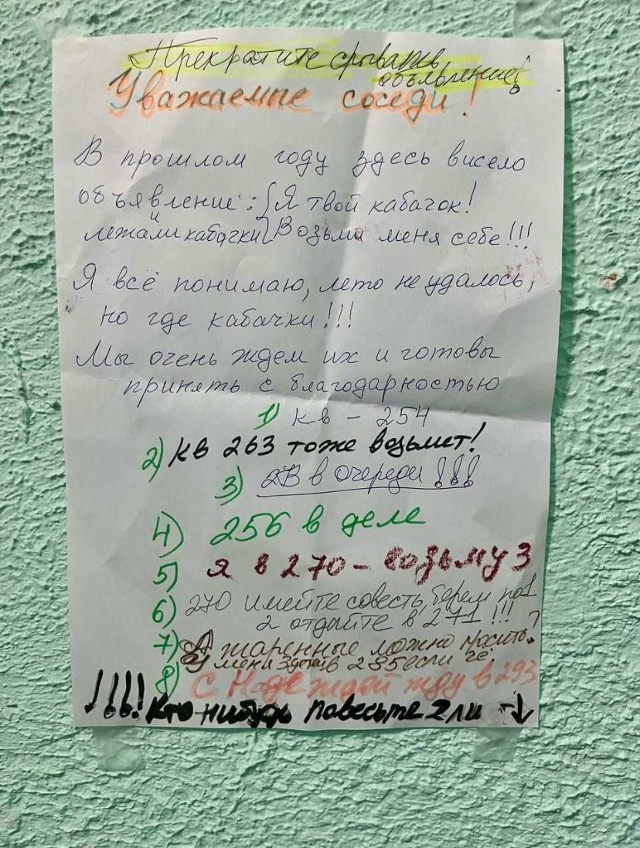 Прекратите срывать
объявление!
Уважаемые соседи!
В прошлом году здесь висело
объявление: { Я твой кабачок!
и
лежали кабачки { Возьми меня себе!!!
Я всё понимаю, лето не удалось,
но где кабачки!!!
Мы очень ждем их и готовы
принять с благодарностью
1) кв - 254
2) кв 263 тоже возьмет!
3) 2В в очереди!!!
4) 256 в деле
5) я в 270 - возьму 3
6) 270 имейте совесть, берем по 1
2 отдайте в 271!!!
7) А жаренные можно носить?
У меня в 235 если че
8) С Надеждой жду в 293
!!!! Кто-нибудь повесьте 2 ли →↓